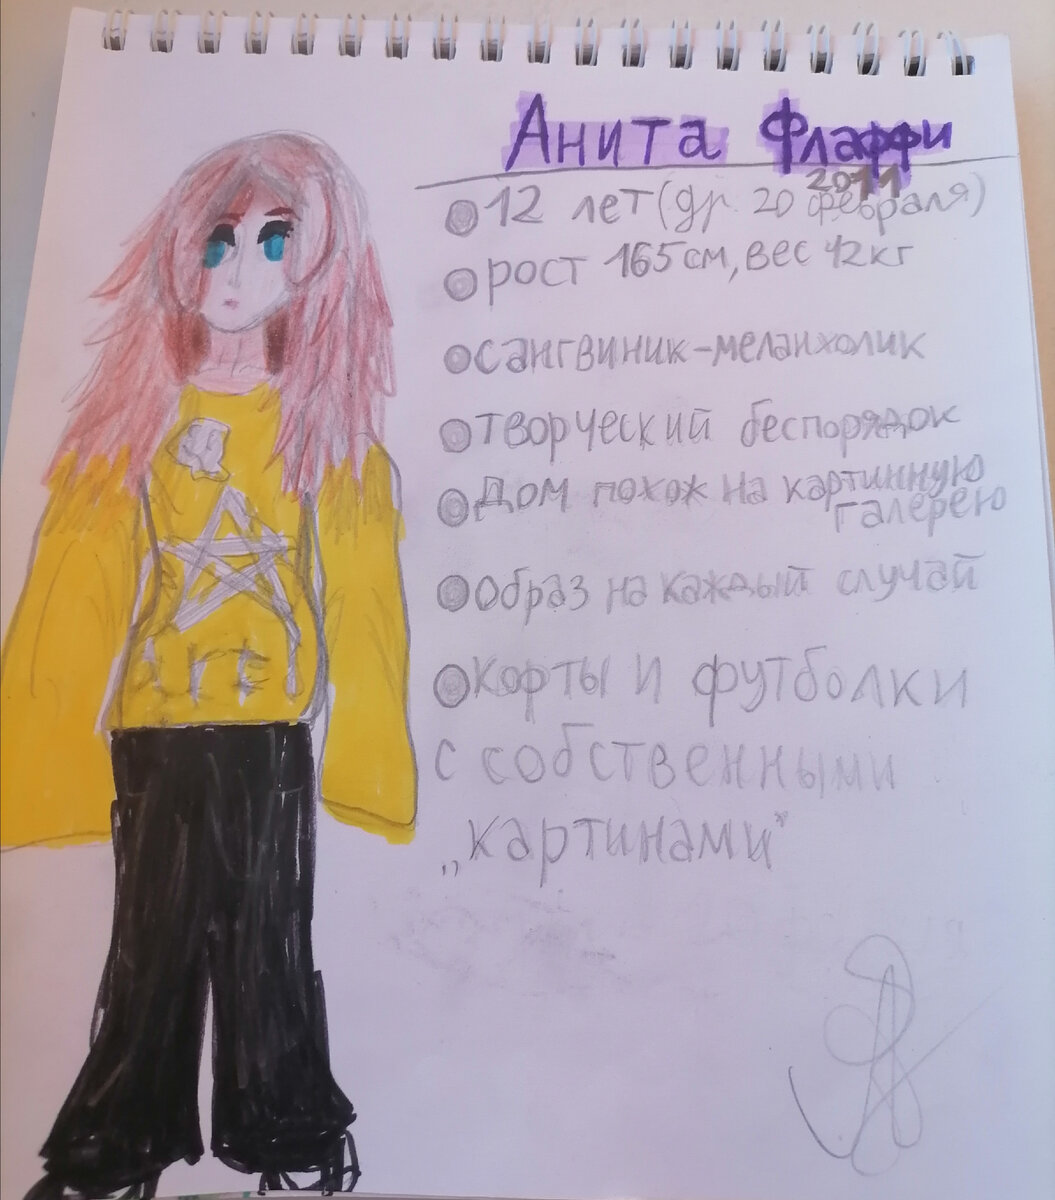 Анита Флаффи
12 лет (др. 20 февраля) 2011
рост 165 см, вес 42кг
сангвиник-меланхолик
творческий беспорядок
Дом похож на картинную
галерею
Образ на каждый случай
корты и футболки
с собственными
„картинами"
art